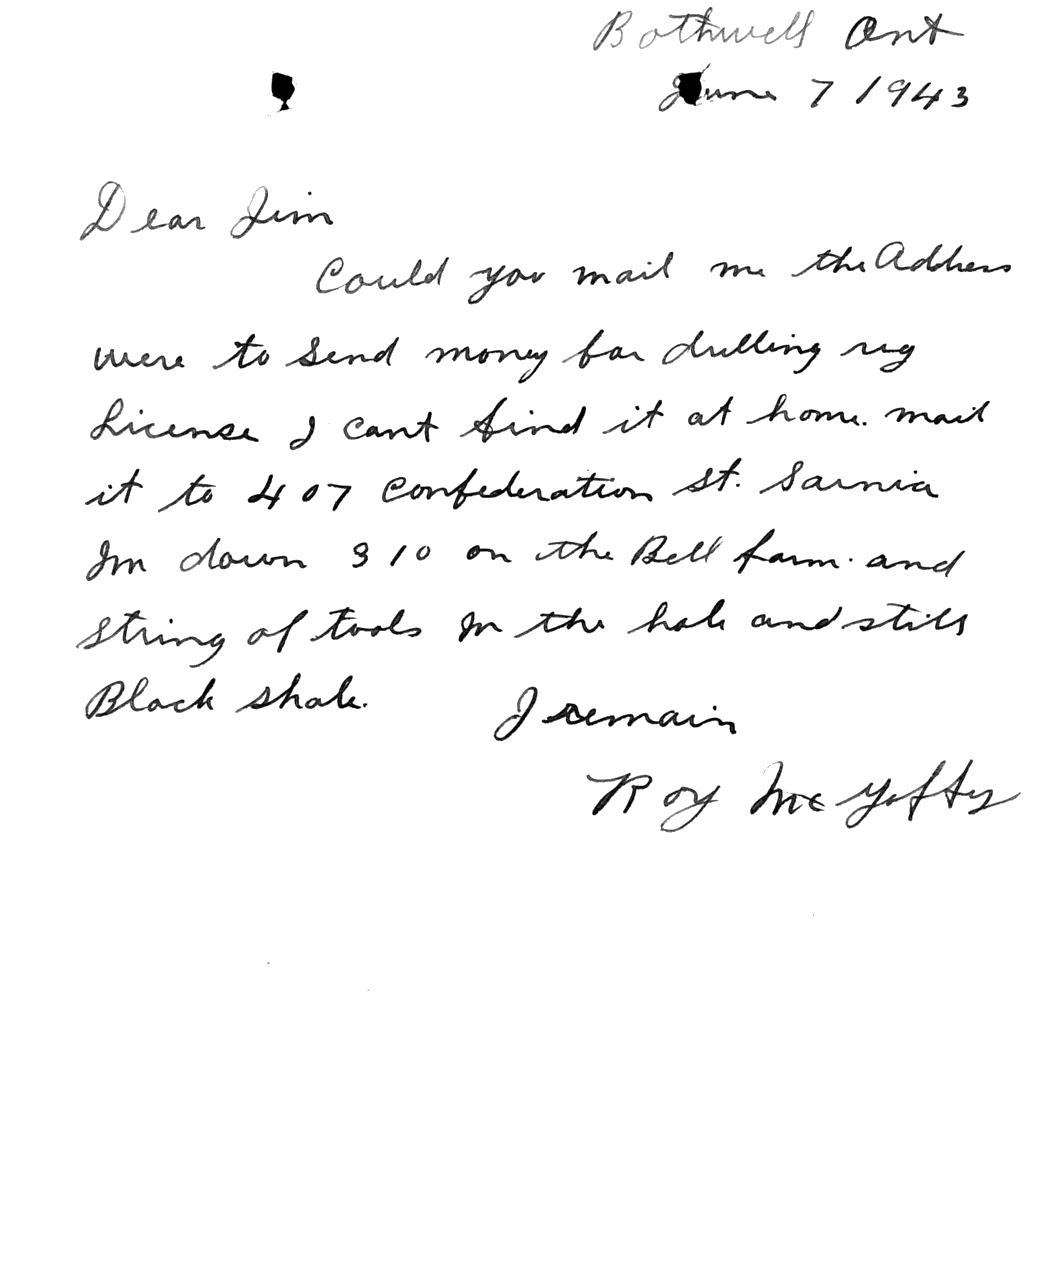 Bothwell Ont
June 7 1943
Dear Jim
Could you mail me the Address
were to send money for drilling rig
License I cant find it at home. mail
it to 407 Confederation St. Sarnia
Im down 310 on the Bell farm. and
string of tools in the hole and still
Black shale.
I remain
Roy Mc